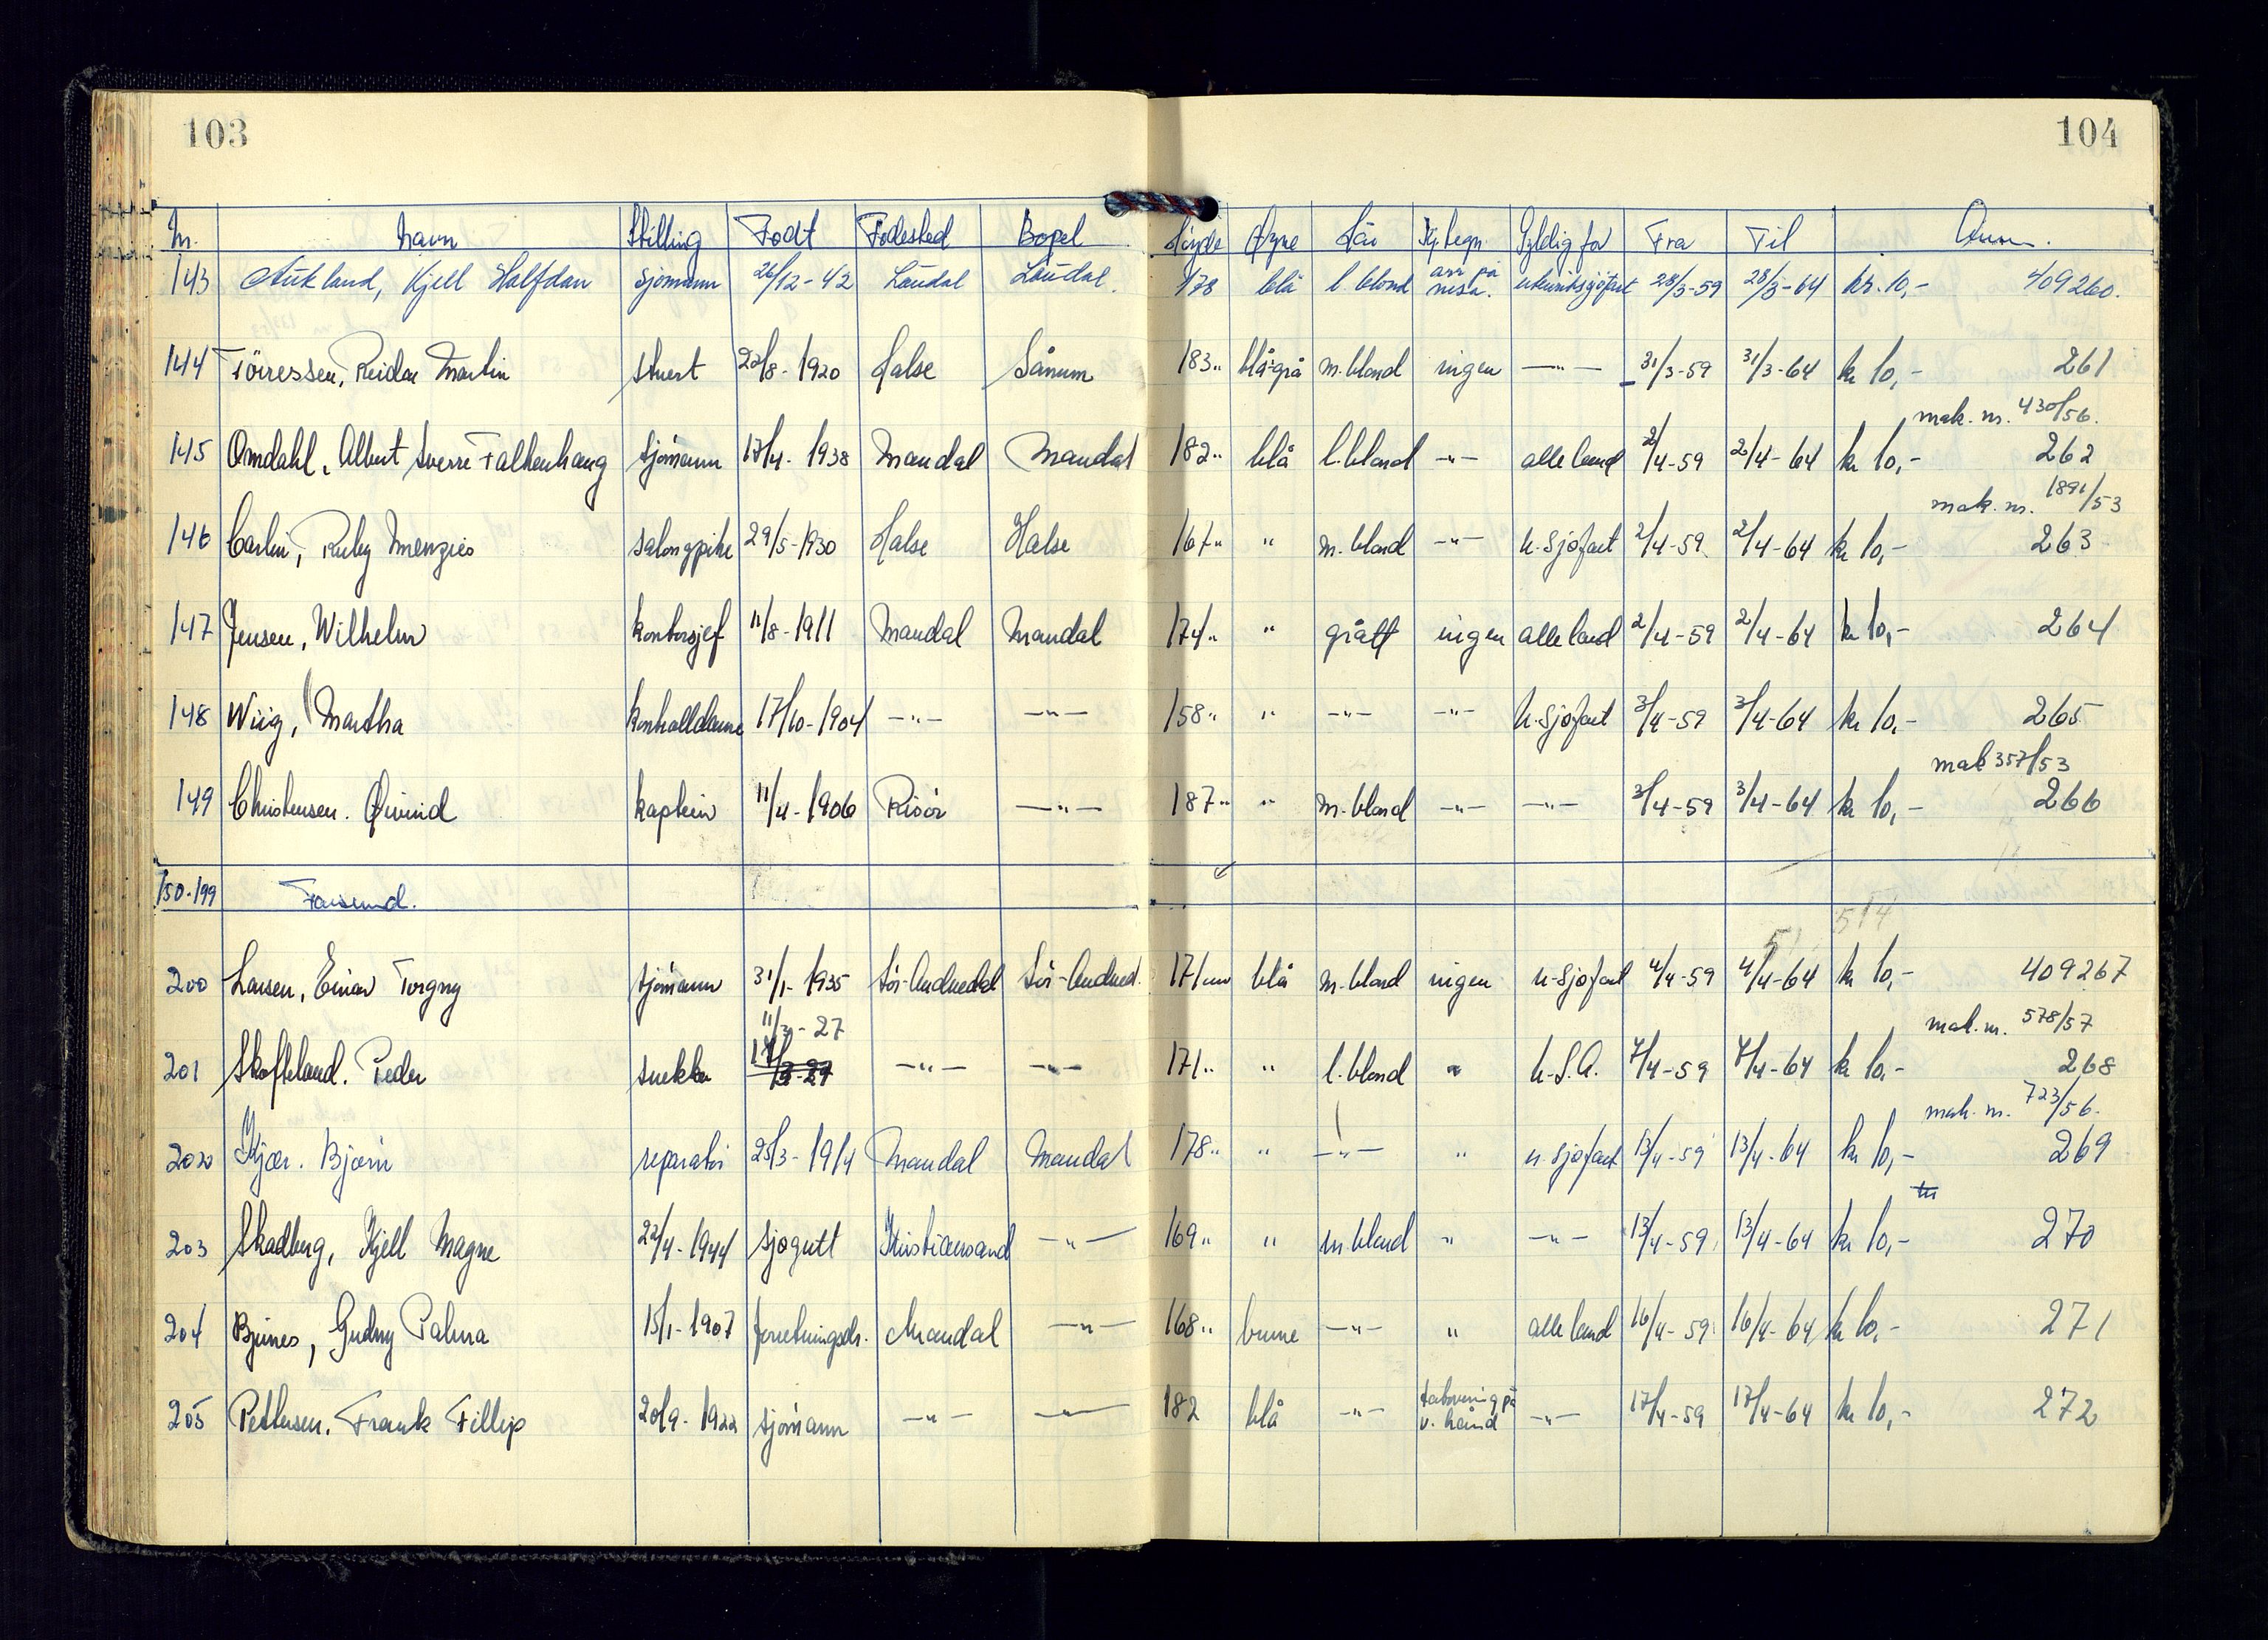 103
104
Nr. Navn Stilling Født Fødested Bopel Høyde Øyne Hår Kj. tegn. Gyldig for Fra Til Anm.
143 Aukland, Kjell Halfdan sjømann 26/12-42 Laudal Laudal. 178 blå l. blond arr på nesa. utenriksjöfart 28/3-59 28/3-64 kr. 10,- 409260.
144 Töressen, Reidar Martin stuert 22/8-1920 Halse Sånum 183" blå-grå m. blond ingen —"— 31/3-59 31/3-64 kr 10,- 261
mak. nr. 430/56.
145 Omdahl, Albert Sverre Falkenhaug sjömann 17/4-1938 Mandal Mandal 182" blå l. blond —"— alle land 2/4-59 2/4-64 kr 10,- 262
mak. nr. 1891/53
146 Carlin, Ruby Menzies salongpike 29/5-1930 Halse Halse 167" " m. blond —"— u-sjöfart 2/4-59 2/4-64 kr 10,- 263
147 Jensen, Wilhelm kontorsjef 11/8-1911 Mandal Mandal 174" " grått ingen alle land 2/4-59 2/4-64 kr 10,- 264
148 Wiig, Martha kontrolldame 17/10-1904 —"— —"— 158" " —"— —"— u-sjöfart 3/4-59 3/4-64 kr 10,- 265
mak 357/53
149 Christensen. Øivind kaptein 11/4-1906 Risör —"— 187" " m. blond —"— —"— 3/4-59 3/4-64 kr 10,- 266
150-199 Farsund.
514
200 Larsen, Einar Torgny sjömann 31/1-1935 Sör-Audnedal Sör-Audned. 171 cm blå m. blond ingen u-sjöfart 4/4-59 4/4-64 kr 10,- 409267
11/3-27 mak. nr. 578/57
201 Skofteland. Peder snekker —"— —"— 171" " l. blond " U.S.A. 7/4-59 7/4-64 kr 10,- 268
mak. nr. 723/56.
202 Kjær. Björn reparatör 25/3-1914 Mandal Mandal 178" " —"— " u-sjöfart 13/4-59 13/4-64 kr 10,- 269
203 Skadberg, Kjell Magne 22/4-1944 sjøgutt Kristiansand —"— 169" " m. blond " —"— 13/4-59 13/4-64 kr 10,- 270
204 Bjunes, Gudny Palma 15/1-1907 forretningsdr. Mandal —"— 168" brune —"— " alle land 16/4-59 16/4-64 kr 10,- 271
205 Pettersen. Frank Fillip 20/9-1922 sjömann —"— —"— 182 blå —"— tatovering på v. hånd —"— 17/4-59 17/4-64 kr 10,- 272